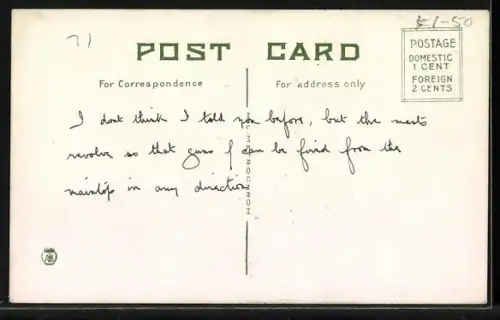 21
£1-50
POST CARD
POSTAGE
DOMESTIC
1 CENT
FOREIGN
2 CENTS
For Correspondence
For address only
I dont think I told you before, but the masts
revolve so that guns can be fired from the
maintop in any direction